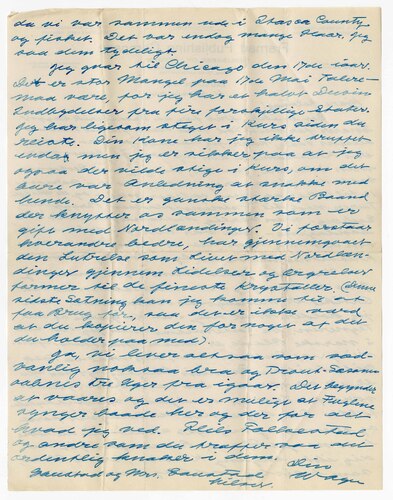 da vi var sammen ude i Itasca County
og fisket. Det var endog mange Klaar. Jeg
saa dem tydeligt.
Jeg gaar til Chicago den 17de iaar.
Det er stor Mangel paa 17de Mai Talere
maa vare, for jeg har et halvt Dusin
Indbydelser fra fire forskjellige Stater.
Jeg har ligesom steget i Kurs siden du
reiste. Din Kone har jeg ikke truffet
endog men jeg er sikker paa at jeg
ogsaa der vilde stige i Kurs, om det
bare var Anledning at snakke med
hende. Det er ganske stærke Baand
der knytter os sammen som er
gift med Nordlændinger. Vi forstaar
hverandre bedre, har gjennemgaaet
den Lutrelse som Livet med Nordlæn-
dinger gjennem Lidelser og Ærgrelser
former til de fineste Krystaller. (Denne
sidste Sætning kan jeg komme til at
faa Brug for, saa det er ikke værd
at du kopierer den for noget af det
du holder paa med).
Ja, vi lever altsaa som sæd-
vanlig noksaa bra og Trout-Seasonen
aabnes tre Uger fra igaar. Det begynder
at vaares og det er muligt at Fuglene
synger baade her og der for alt
hvad jeg ved. Hils
og andre som du træffer saa det
ordentlig knaker i dem.
Din
Gaustad og Mrs. Gaustad
hilser.